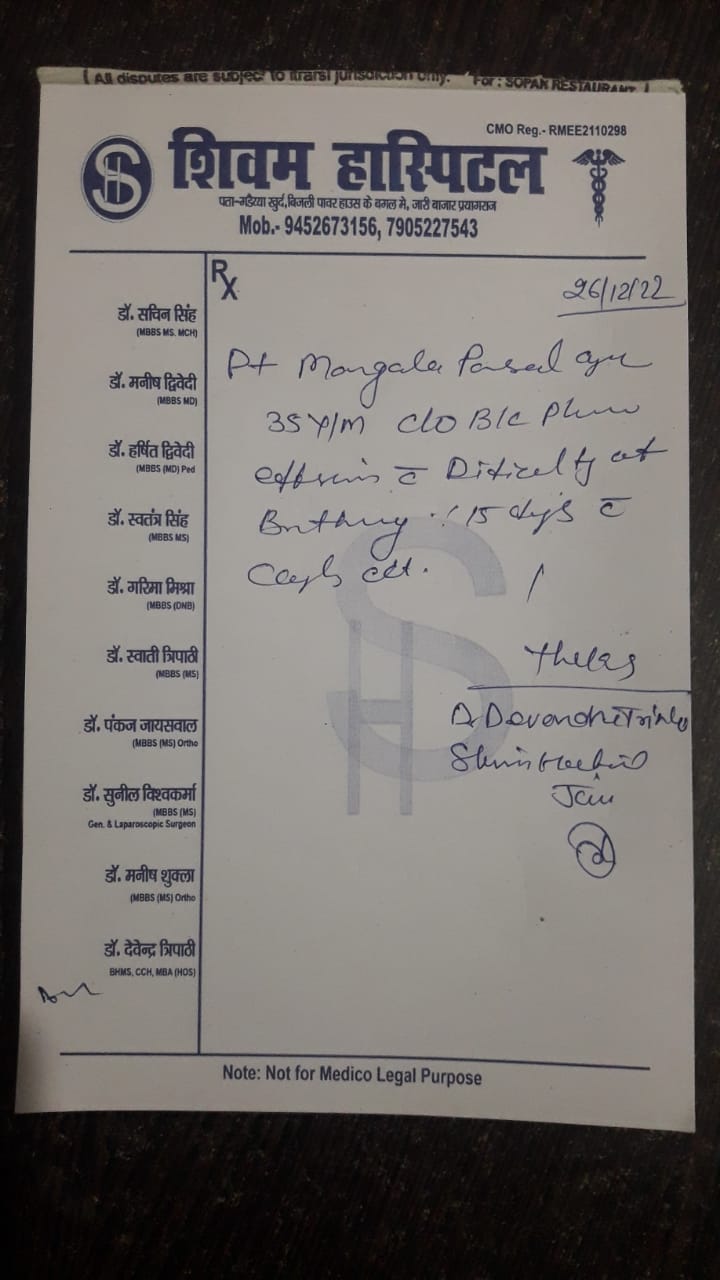 ( All disputes are subject to Itarsi jurisdiction only. For : SOPAN RESTAURANT )
CMO Reg.- RMEE2110298
शिवम हास्पिटल
पता-मड़ैय्या खुर्द,बिजली पावर हाउस के बगल मे, जारी बाजार प्रयागराज
Mob.- 9452673156, 7905227543
Rx
26/12/22
डॉ. सचिन सिंह
(MBBS MS. MCH)
डॉ. मनीष द्विवेदी
(MBBS MD)
डॉ. हर्षित द्विवेदी
(MBBS (MD) Ped
डॉ. स्वतंत्र सिंह
(MBBS MS)
डॉ. गरिमा मिश्रा
(MBBS (DNB)
डॉ. स्वाती त्रिपाठी
(MBBS (MS)
डॉ. पंकज जायसवाल
(MBBS (MS) Ortho
डॉ. सुनील विश्वकर्मा
(MBBS (MS)
Gen. & Laparoscopic Surgeon
डॉ. मनीष शुक्ला
(MBBS (MS) Ortho
डॉ. देवेन्द्र त्रिपाठी
BHMS, CCH, MBA (HOS)
Pt Mangala
35 Y/M c/o B/L
15 days c̄
SH
Dr Devendra
Note: Not for Medico Legal Purpose